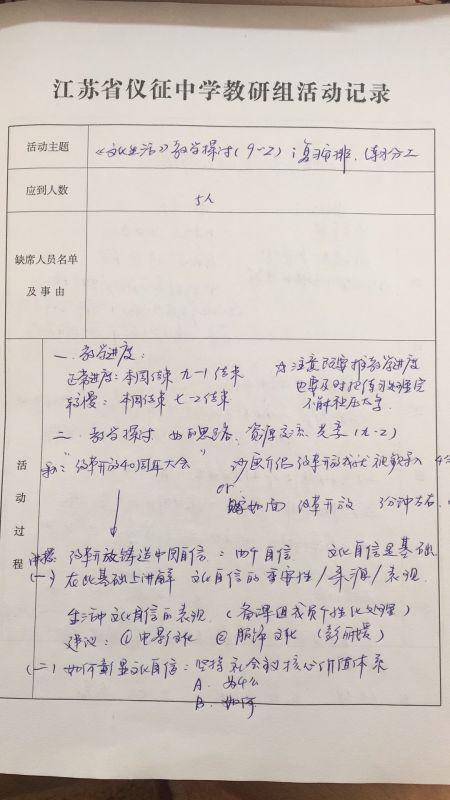 江苏省仪征中学教研组活动记录
活动主题 《文化生活》教学探讨(9-2);复习安排、练习分工
应到人数 5人
缺席人员名单
及事由
活动过程
一、教学进度:
正常进度:本周结束 九-1 结束
较慢:本周结束 七-2 结束
注意既要推教学进度
也要及时把练习处理完
不能积压太多
二、教学探讨 如的思路、资源交流、共享(九-2)
"改革开放40周年大会"
改革开放 视频导入
or
改革开放 3分钟左右
改革开放铸造中国自信:四个自信 文化自信是基础
(一)在此基础上讲解 文化自信的重要性/来源/表现
生活中文化自信的表现(备课组成员个性化处理)
建议:① 电影文化 ② 服饰文化
(二)如何彰显文化自信:坚持社会主义核心价值体系
A. 为什么
B. 如何